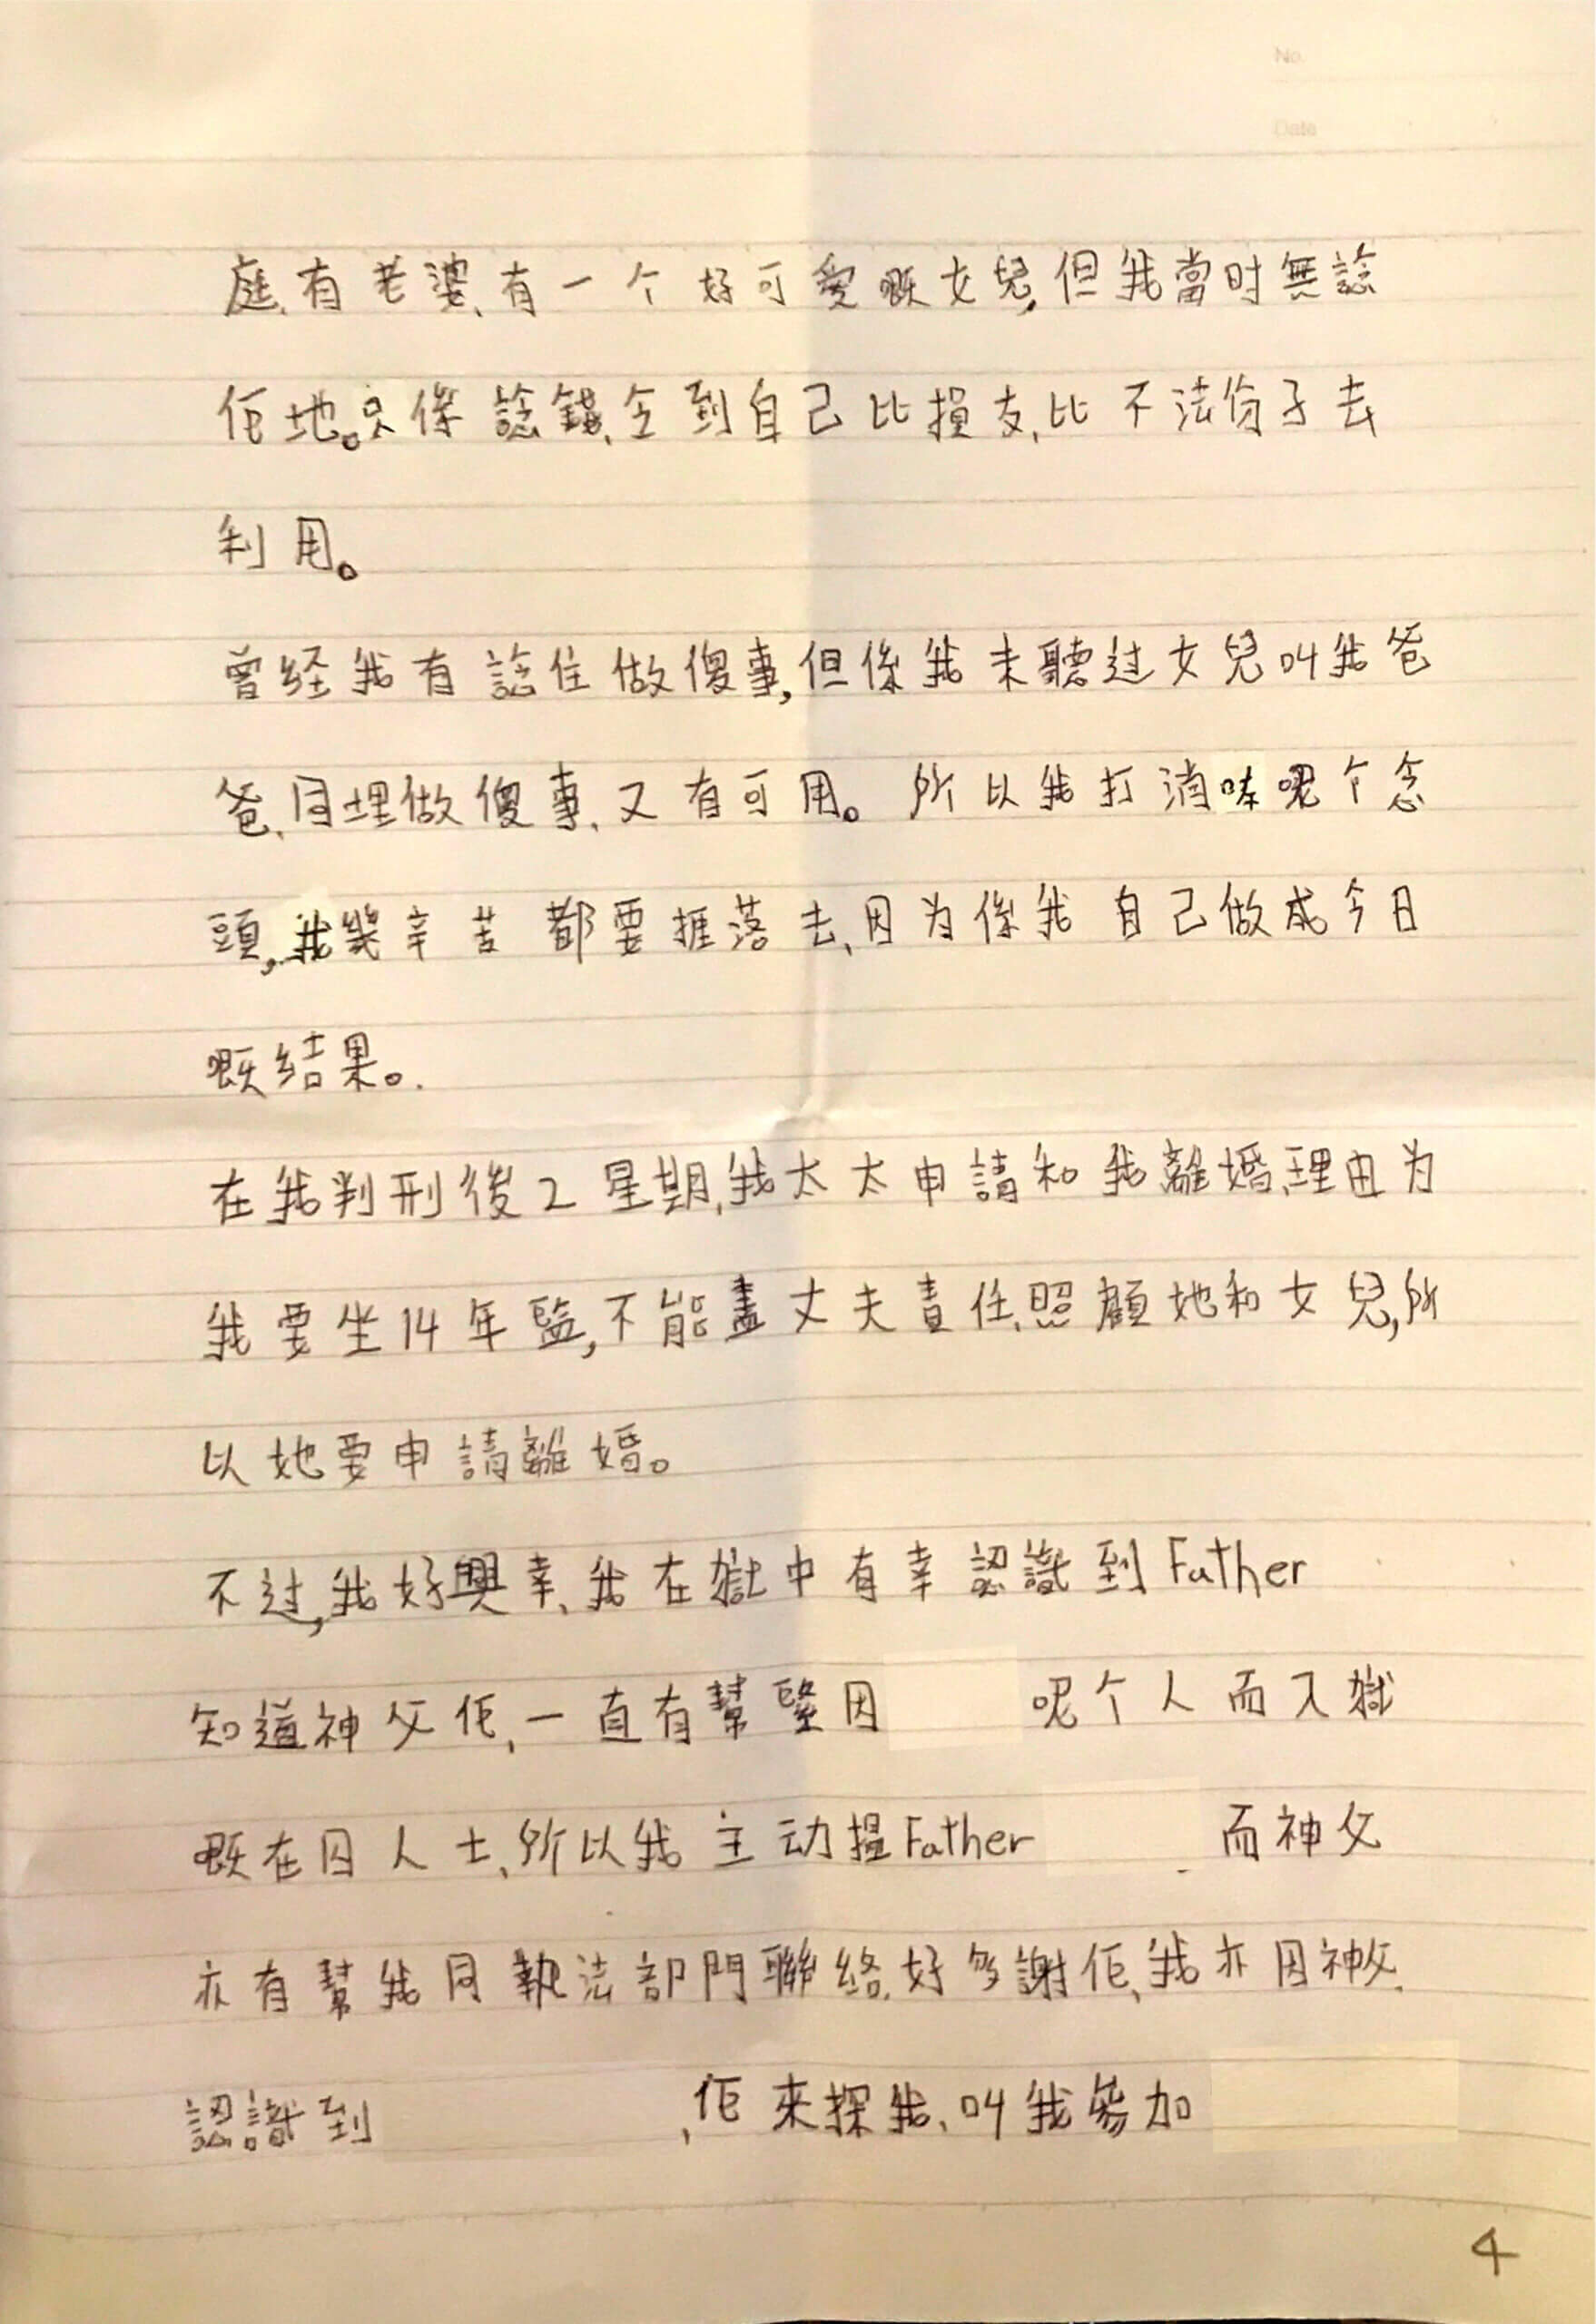 No.
Date
庭、有老婆、有一个好可愛嘅女兒,但我當时無諗
佢地。只係諗錢、令到自己比損友、比不法份子去
利用。
曾经我有諗住做傻事,但係我未聽过女兒叫我爸
爸、同埋做傻事、又有可用。所以我打消咗呢个念
頭,我幾辛苦都要捱落去、因为係我自己做成今日
嘅结果。
在我判刑後2星期,我太太申請和我離婚、理由为
我要坐14年監,不能盡丈夫責任、照顧她和女兒,所
以她要申請離婚。
不过,我好興幸、我在獄中有幸認識到Father
知道神父佢、一直有幫緊因 呢个人而入獄
嘅在囚人士、所以我主动搵Father 而神父
亦有幫我同執法部門聯络、好多謝佢、我亦因神父
認識到 、佢來探我、叫我參加
4